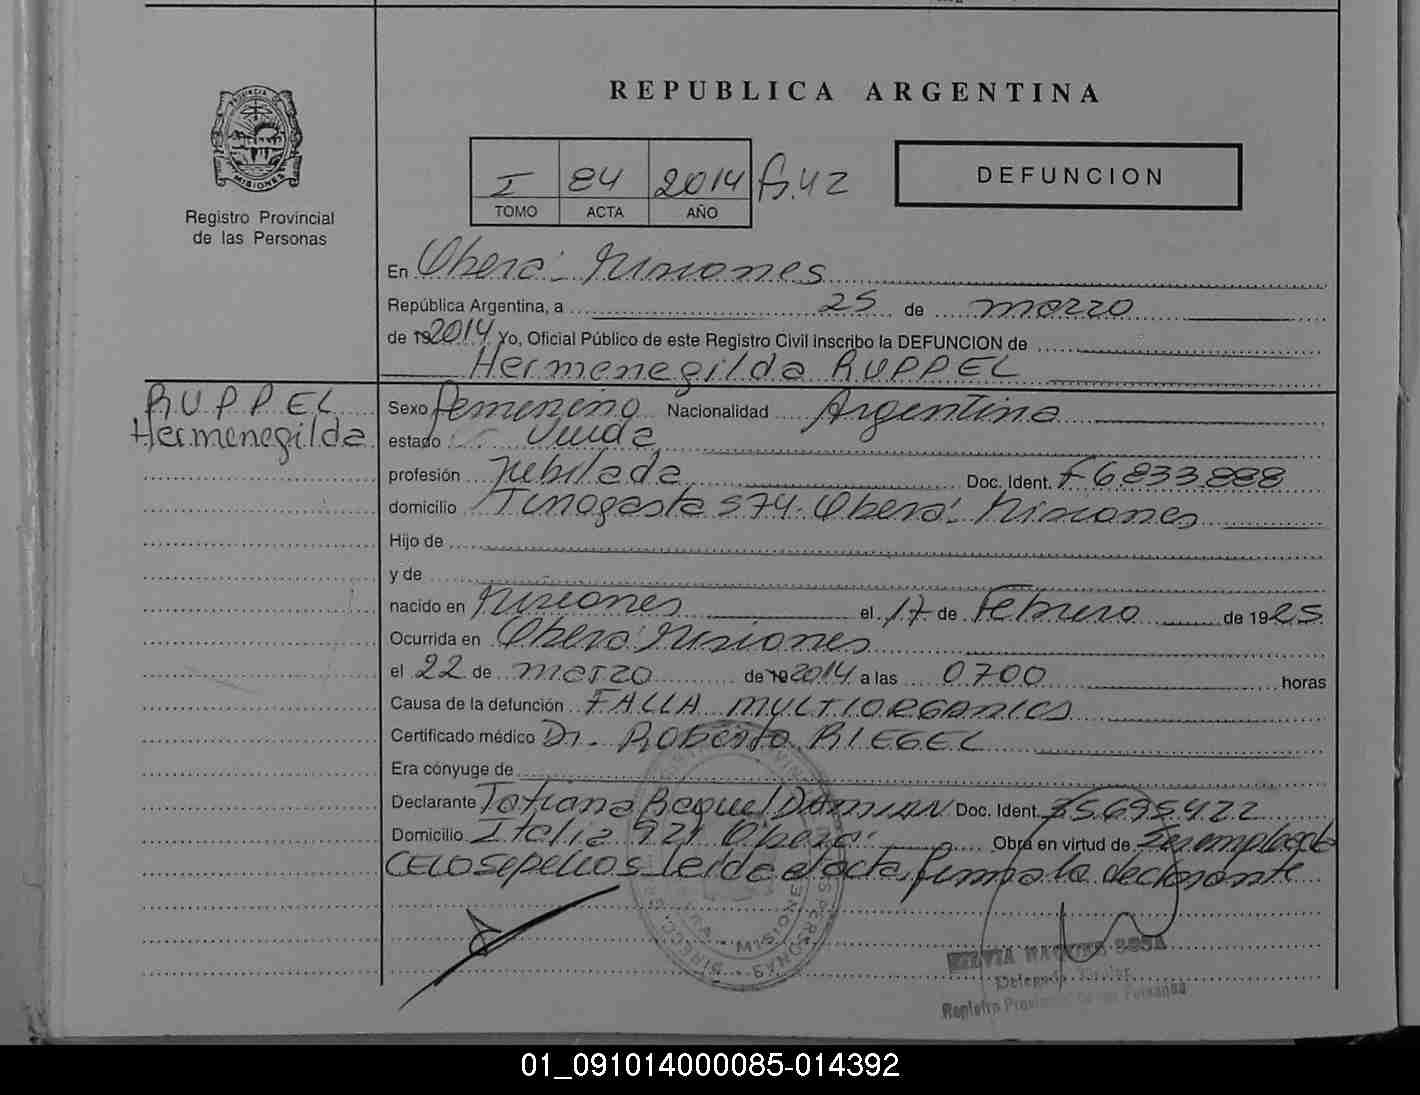 REPUBLICA ARGENTINA
PROVINCIA DE
MISIONES
Registro Provincial
de las Personas
I 84 2014 fs.42
TOMO ACTA AÑO
DEFUNCION
En Oberá - Misiones
República Argentina, a 25 de marzo
de 19 2014 Yo, Oficial Público de este Registro Civil inscribo la DEFUNCION de
Hermenegilda RUPPEL
RUPPEL
Hermenegilda
Sexo femenino Nacionalidad Argentina
estado Viuda
profesión Jubilada Doc. Ident. F6833888
domicilio Tinogasta 574. Oberá. Misiones
Hijo de
y de
nacido en Misiones el 17 de Febrero de 1925
Ocurrida en Oberá Misiones
el 22 de marzo de 19 2014 a las 0700 horas
Causa de la defunción FALLA MULTIORGANICA
Certificado médico Dr. Roberto RIEGEL
Era cónyuge de
Declarante Tatiana Raquel DAMIAN Doc. Ident. 35695422
Domicilio Italia 921 Oberá. Obra en virtud de Ser empleada
CELO sepelios leída el acta, firma la declarante
MISIONES
SOSA
Registro
01_091014000085-014392